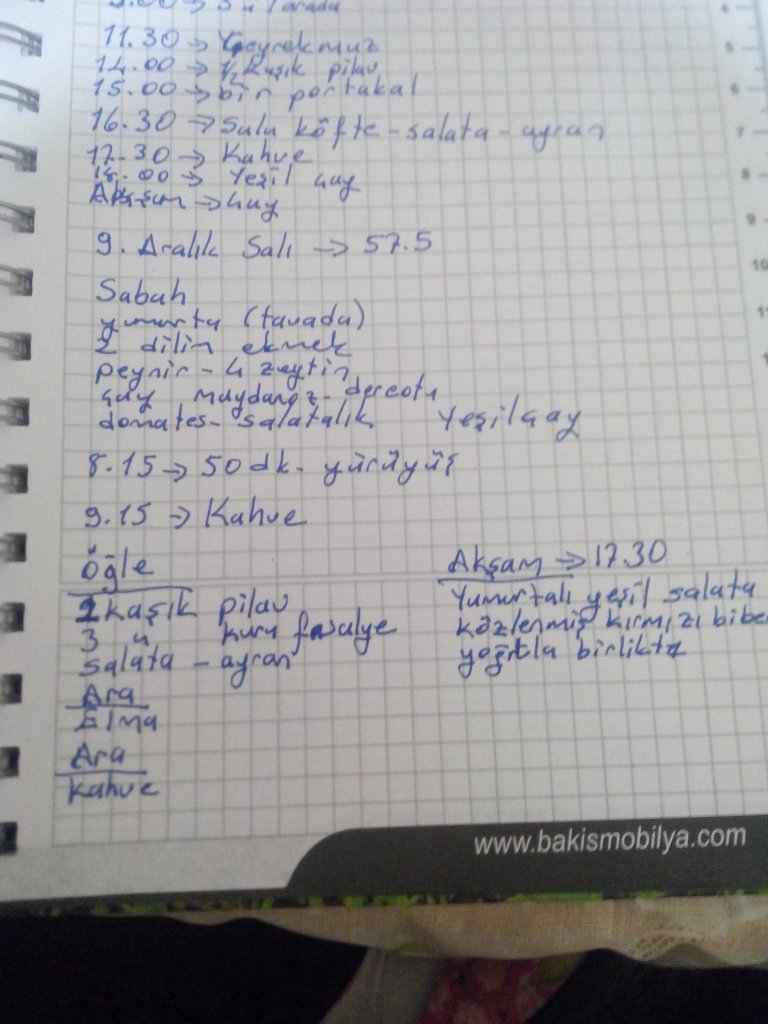 11.30 → Çeyrek muz
14.00 → 1/2 kaşık pilav
15.00 → bir portakal
16.30 → Sulu köfte - salata - ayran
17.30 → Kahve
18.00 → Yeşil çay
Akşam → çay
9. Aralık Salı → 57.5
Sabah
yumurta (tavada)
2 dilim ekmek
peynir - 4 zeytin
çay maydanoz - dereotu
domates - salatalık Yeşilçay
8.15 → 50 dk. yürüyüş
9.15 → Kahve
Öğle
2 kaşık pilav
3 " kuru fasulye
salata - ayran
Ara
Elma
Ara
Kahve
Akşam → 17.30
Yumurtalı yeşil salata
közlenmiş kırmızı biber
yoğurtla birlikte
www.bakismobilya.com
4
5
6
7
8
9
10